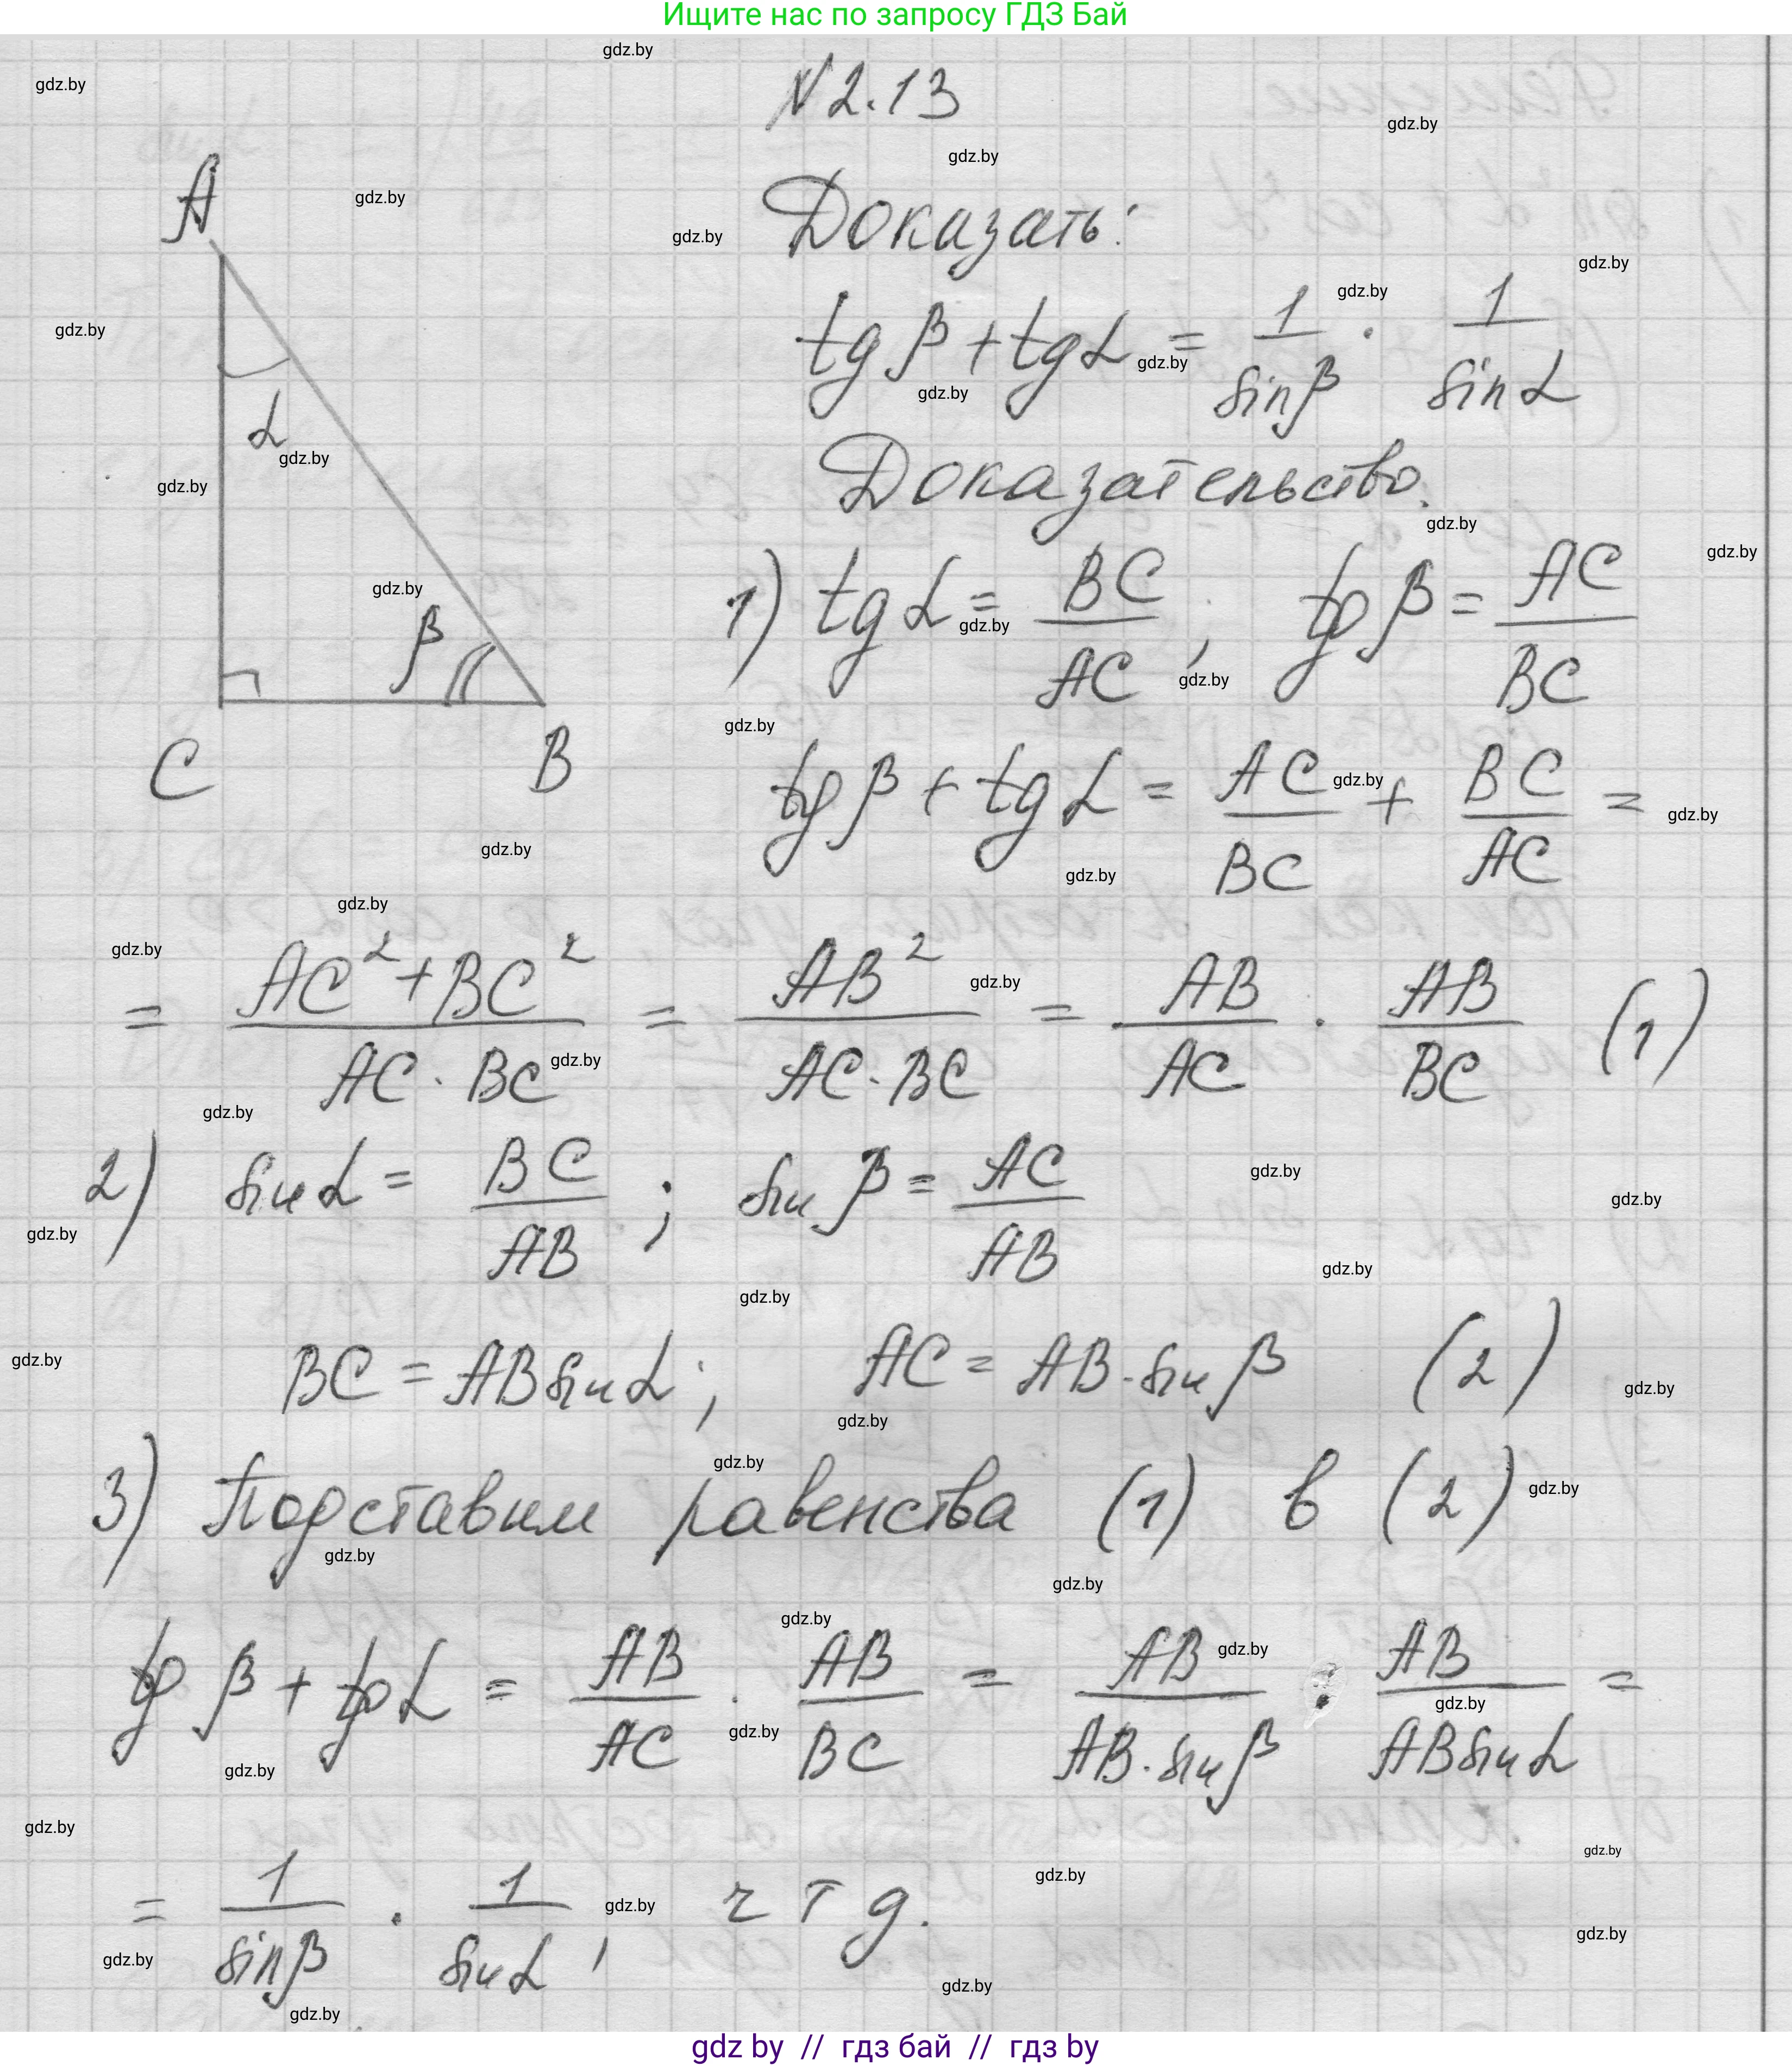 Ищите нас по запросу ГДЗ Бай
N 2.13
A
α
β
C
B
Доказать:
tg β + tg α = 1/sin β · 1/sin α
Доказательство.
1) tg α = BC/AC ; tg β = AC/BC
tg β + tg α = AC/BC + BC/AC =
= AC² + BC²/AC · BC = AB²/AC · BC = AB/AC · AB/BC (1)
2) sin α = BC/AB ; sin β = AC/AB
BC = AB sin α ; AC = AB · sin β (2)
3) Подставим равенства (1) в (2)
tg β + tg α = AB/AC · AB/BC = AB/AB · sin β · AB/AB sin α =
= 1/sin β · 1/sin α , ч т д.
gdz by // гдз бай // гдз by
gdz.by